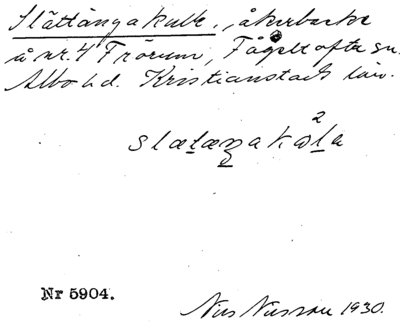 Slättängakulle, åkerbacke
å nr. 4 Frörum, Fågeltofta sn.
Albo hd. Kristianstads län.
slætæŋakɷ²lɐ
Nr 5904.
Nils Nilsson 1930.